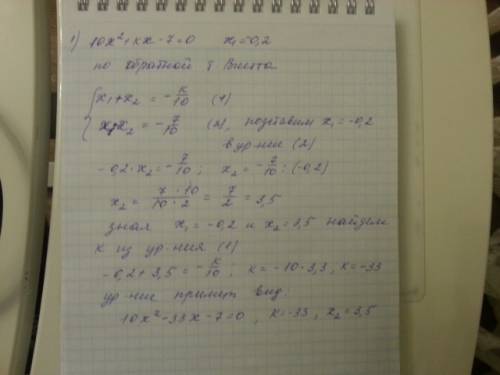 1) 10x² + kx - 7 = 0    x₁ = 0,2
по обратной т Виета
{ x₁ + x₂ = -k/10  (1)
x₁x₂ = -7/10  (2), подставим x₁ = -0,2
в ур-ние (2)
-0,2 · x₂ = -7/10 ; x₂ = -7/10 : (-0,2)
x₂ = 7 · 10/10 · 2 = 7/2 = 3,5
зная x₁ = -0,2 и x₂ = 3,5 найдем
k из ур-ния (1)
-0,2 + 3,5 = -k/10 ; k = -10 · 3,3, k = -33
ур-ние примет вид:
10x² - 33x - 7 = 0 , k = -33 , x₂ = 3,5